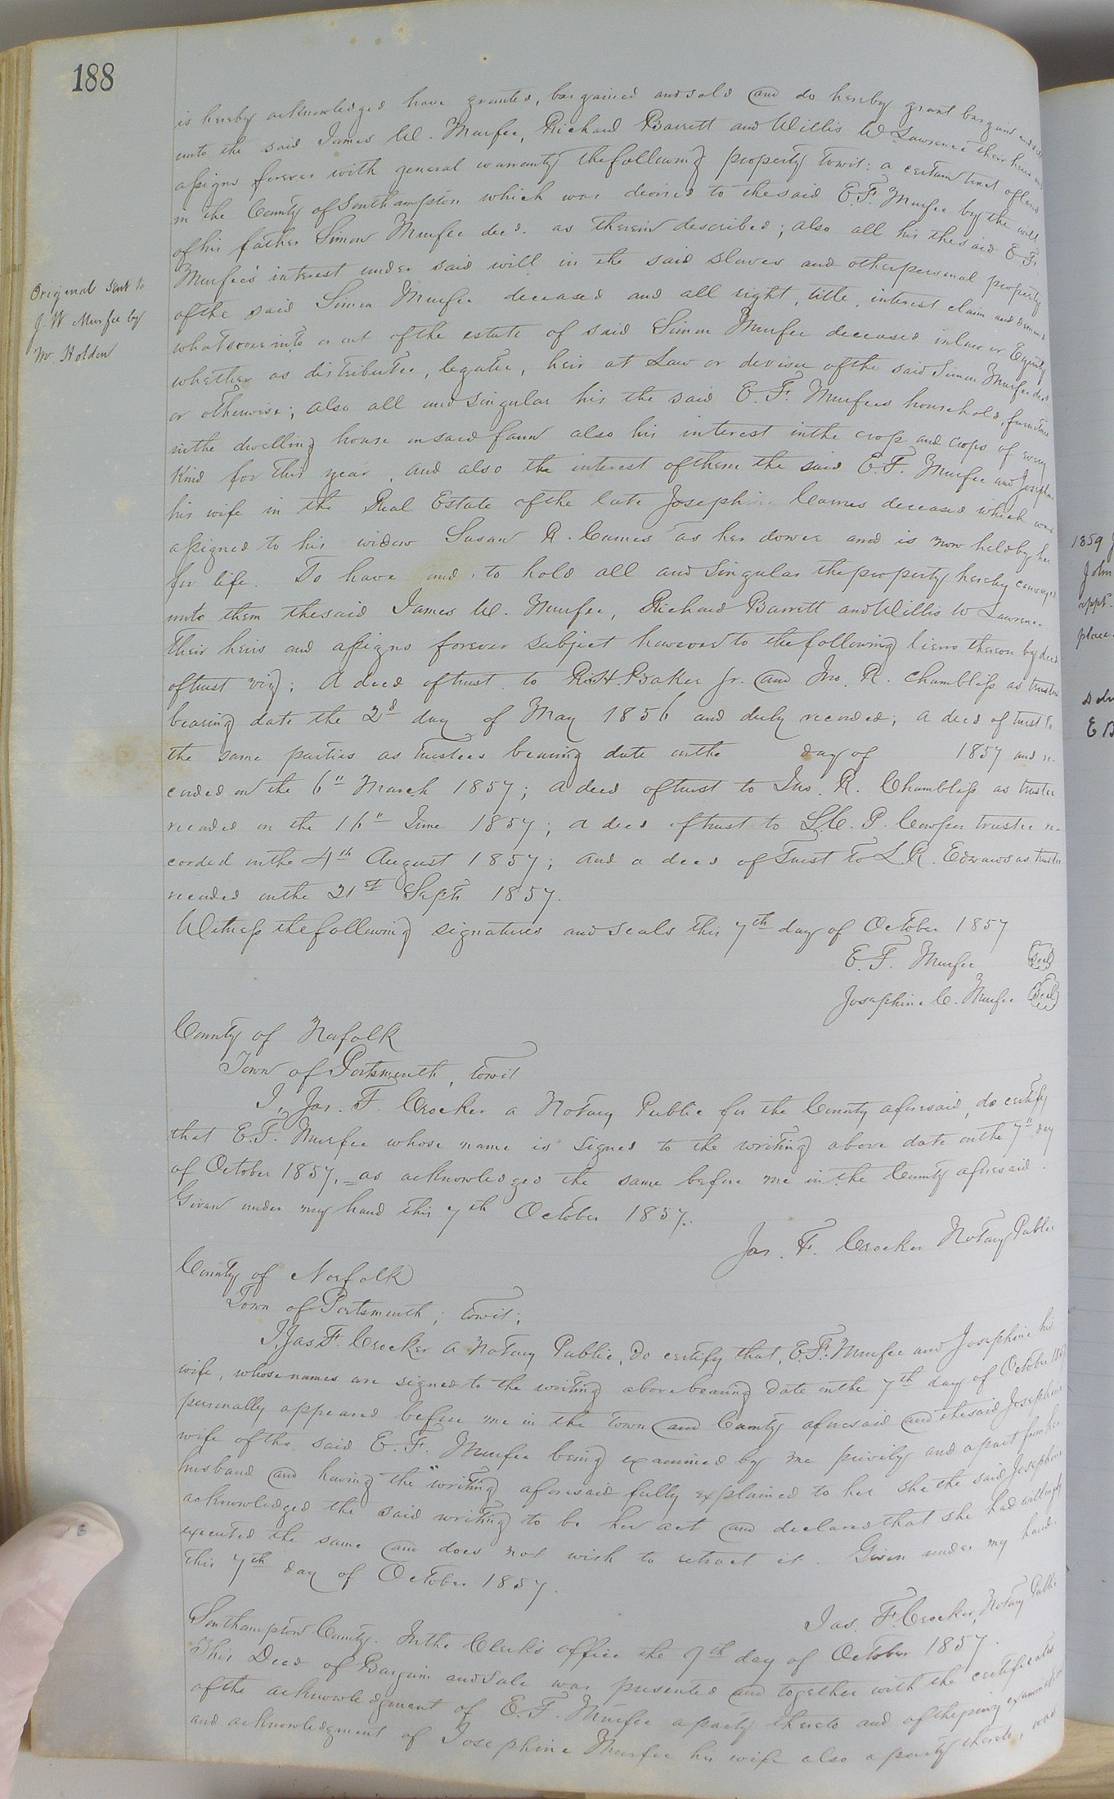 188
is hereby acknowledged have granted, bargained and sold and do hereby grant bargain and sell
unto the said James W. Murfee, Richard Barrett and Willis W Lawrence their heirs and
assigns forever with general warranty the following property towit: a certain tract of land
in the County of Southampton which was devised to the said E. F. Murfee by the will
of his father Simon Murfee decd. as therein described; also all his the said E. F.
Murfee's interest under said will in the said slaves and other personal property
of the said Simon Murfee deceased and all right, title, interest claim and demand
whatsoever into or out of the estate of said Simon Murfee deceased in law or Equity
whether as distributee, legatee, heir at Law or devisee of the said Simon Murfee decd
or otherwise; also all and singular his the said E. F. Murfees household furniture
in the dwelling house on said farm also his interest in the crop and crops of every
kind for this year, and also the interest of them the said E. F. Murfee and Josephine
his wife in the Real Estate of the late Joseph Carnes deceased which was
assigned to his widow Susan R. Carnes as her dower and is now held by her
for life. To have and to hold all and singular the property hereby conveyed
unto them the said James W. Murfee, Richard Barrett and Willis W Lawrence
their heirs and assigns forever subject however to the following liens thereon by deed
of trust viz; A deed of trust to R. H. Baker Jr. and Jno. R. Chambliss as trustees
bearing date the 2d day of May 1856 and duly recorded; a deed of trust to
the same parties as trustees bearing date on the day of 1857 and re-
corded on the 6" March 1857; a deed of trust to Jno. R. Chambliss as trustee
recorded on the 16" June 1857; a deed of trust to L. C. P. Cowper trustee re-
corded on the 4th August 1857; and a deed of Trust to L R. Edwards as trustee
recorded on the 21st Sept 1857.
Witness the following signatures and seals this 7th day of October 1857
E. F. Murfee Seal
Josephine C. Murfee Seal
County of Norfolk
Town of Portsmouth, towit
I, Jas. F. Crocker a Notary Public for the County aforesaid, do certify
that E. F. Murfee whose name is signed to the writing above date on the 7" day
of October 1857, as acknowledged the same before me in the County aforesaid.
Given under my hand this 7th October 1857.
Jas. F. Crocker Notary Public
County of Norfolk
Town of Portsmouth; towit;
I, Jas F. Crocker a Notary Public, do certify that, E. F. Murfee and Josephine his
wife, whose names are signed to the writing above bearing date on the 7th day of October 1857
personally appeared before me in the town and County aforesaid and the said Josephine
wife of the said E. F. Murfee being examined by me privily and apart from her
husband and having the writing aforesaid fully explained to her she the said Josephine
acknowledged the said writing to be her act and declared that she had willingly
executed the same and does not wish to retract it. Given under my hand
this 7th day of October 1857.
Jas. F. Crocker, Notary Public
Southampton County. In the Clerk's office the 9th day of October 1857.
This Deed of Bargain and Sale was presented and together with the certificates
of the acknowledgment of E. F. Murfee a party thereto and of the privy examination
and acknowledgment of Josephine Murfee his wife also a party thereto, was
Original sent to
J. W Murfee by
Mr Holden
1859
John
appt.
place